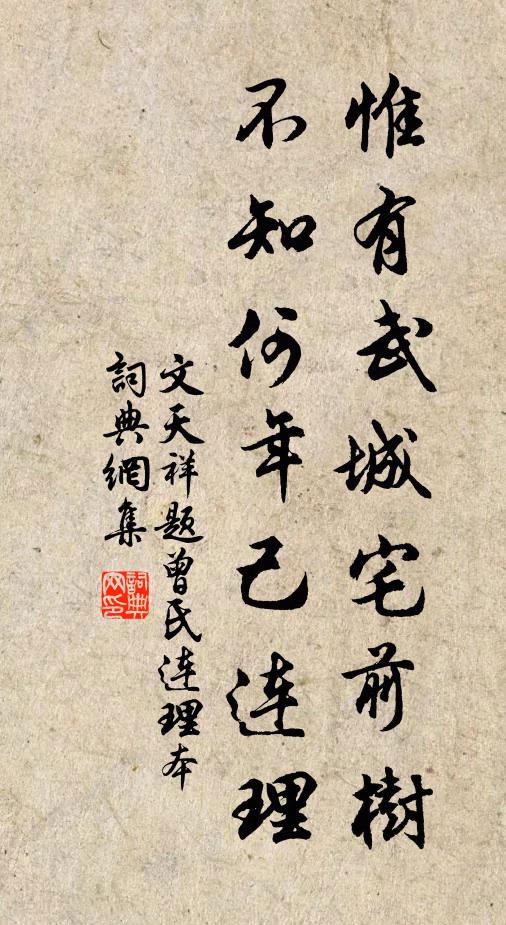 惟有武城宅前樹
不知何年已連理
文天祥題曾氏連理本
詞典網集
詞典网印